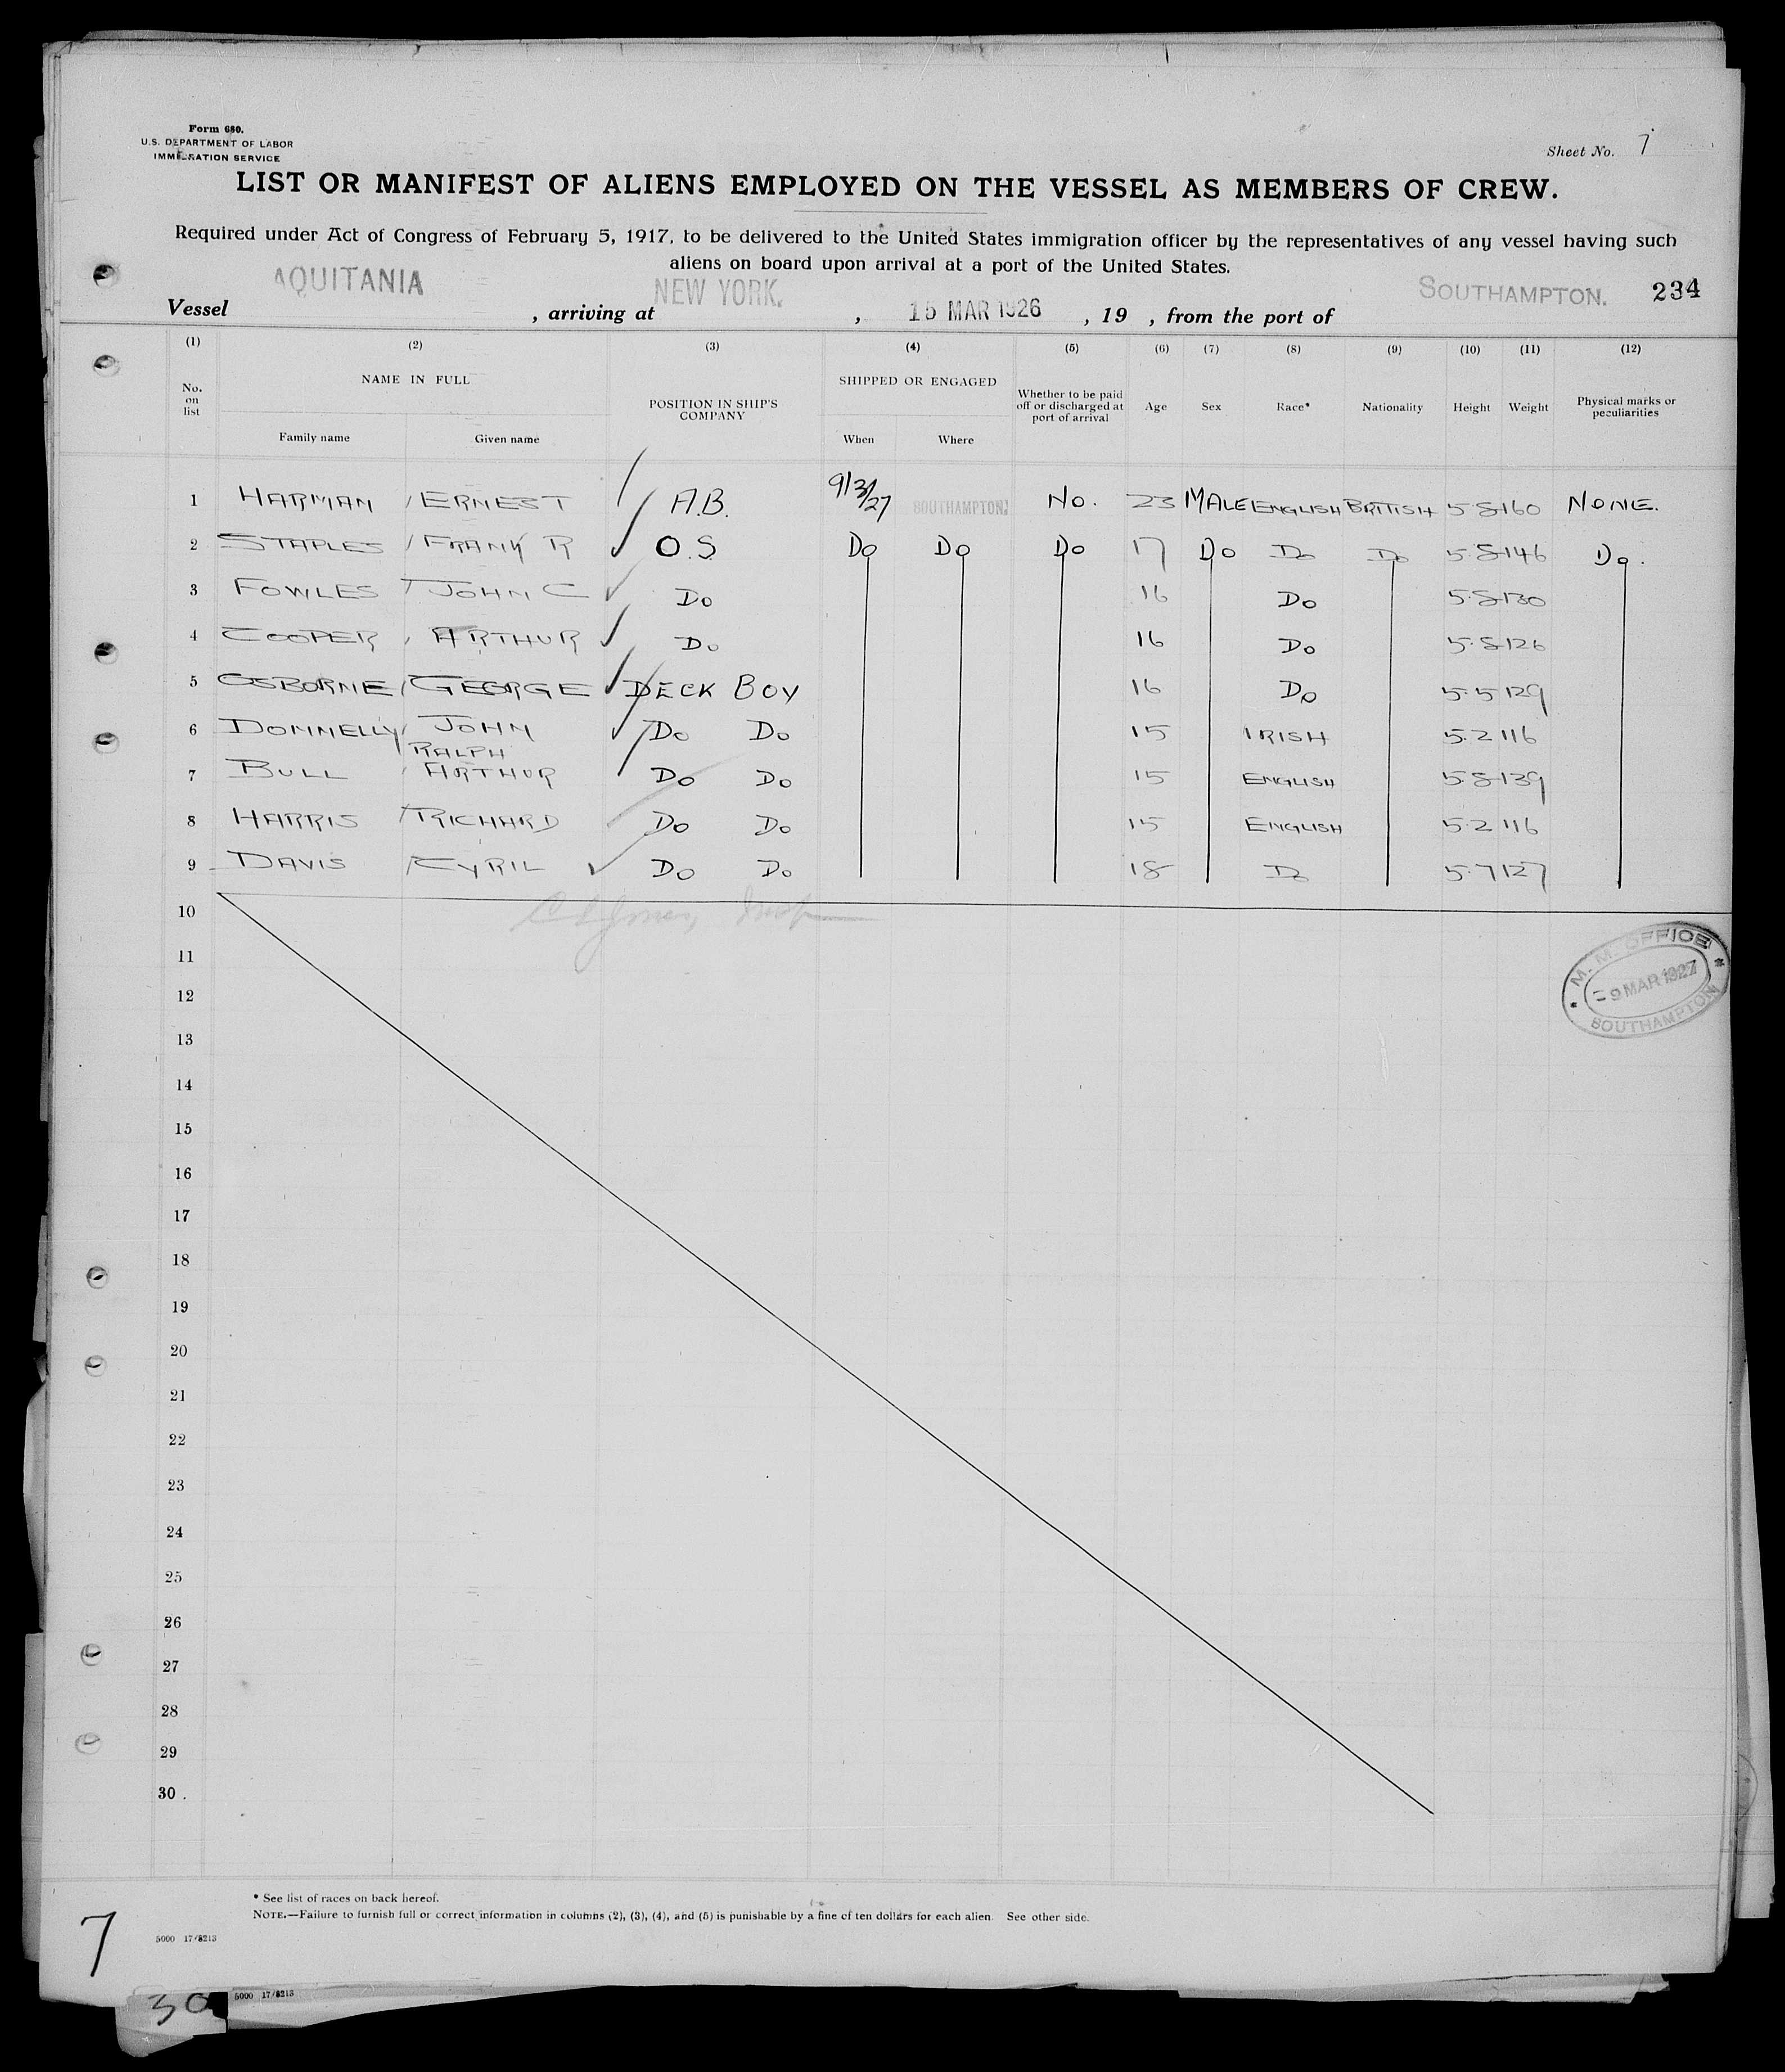 Form 680.
U.S. DEPARTMENT OF LABOR
IMMIGRATION SERVICE
Sheet No. 7
LIST OR MANIFEST OF ALIENS EMPLOYED ON THE VESSEL AS MEMBERS OF CREW.
Required under Act of Congress of February 5, 1917, to be delivered to the United States immigration officer by the representatives of any vessel having such
aliens on board upon arrival at a port of the United States.
Vessel AQUITANIA, arriving at NEW YORK, 15 MAR 1926, 19 , from the port of SOUTHAMPTON. 234
(1) (2) (3) (4) (5) (6) (7) (8) (9) (10) (11) (12)
No. on list NAME IN FULL Family name Given name POSITION IN SHIP'S COMPANY SHIPPED OR ENGAGED When Where Whether to be paid off or discharged at port of arrival Age Sex Race* Nationality Height Weight Physical marks or peculiarities
1 HARMAN ERNEST A.B. 9/3/27 SOUTHAMPTON. No. 23 MALE ENGLISH BRITISH 5.8 160 NONE.
2 STAPLES FRANK R O.S. Do Do Do 17 Do Do Do 5.8 146 Do.
3 FOWLES JOHN C Do 16 Do 5.8 130
4 COOPER ARTHUR Do 16 Do 5.8 126
5 OSBORNE GEORGE DECK BOY 16 Do 5.5 129
6 DONNELLY JOHN Do Do 15 IRISH 5.2 116
7 BULL RALPH ARTHUR Do Do 15 ENGLISH 5.8 139
8 HARRIS RICHARD Do Do 15 ENGLISH 5.2 116
9 DAVIS CYRIL Do Do 18 Do 5.7 127
10
11
M. M. OFFICE
9 MAR 1927
SOUTHAMPTON
12
13
14
15
16
17
18
19
20
21
22
23
24
25
26
27
28
29
30.
* See list of races on back hereof.
NOTE.—Failure to furnish full or correct information in columns (2), (3), (4), and (5) is punishable by a fine of ten dollars for each alien. See other side.
7
5000 17/8213
30
5000 17/8213